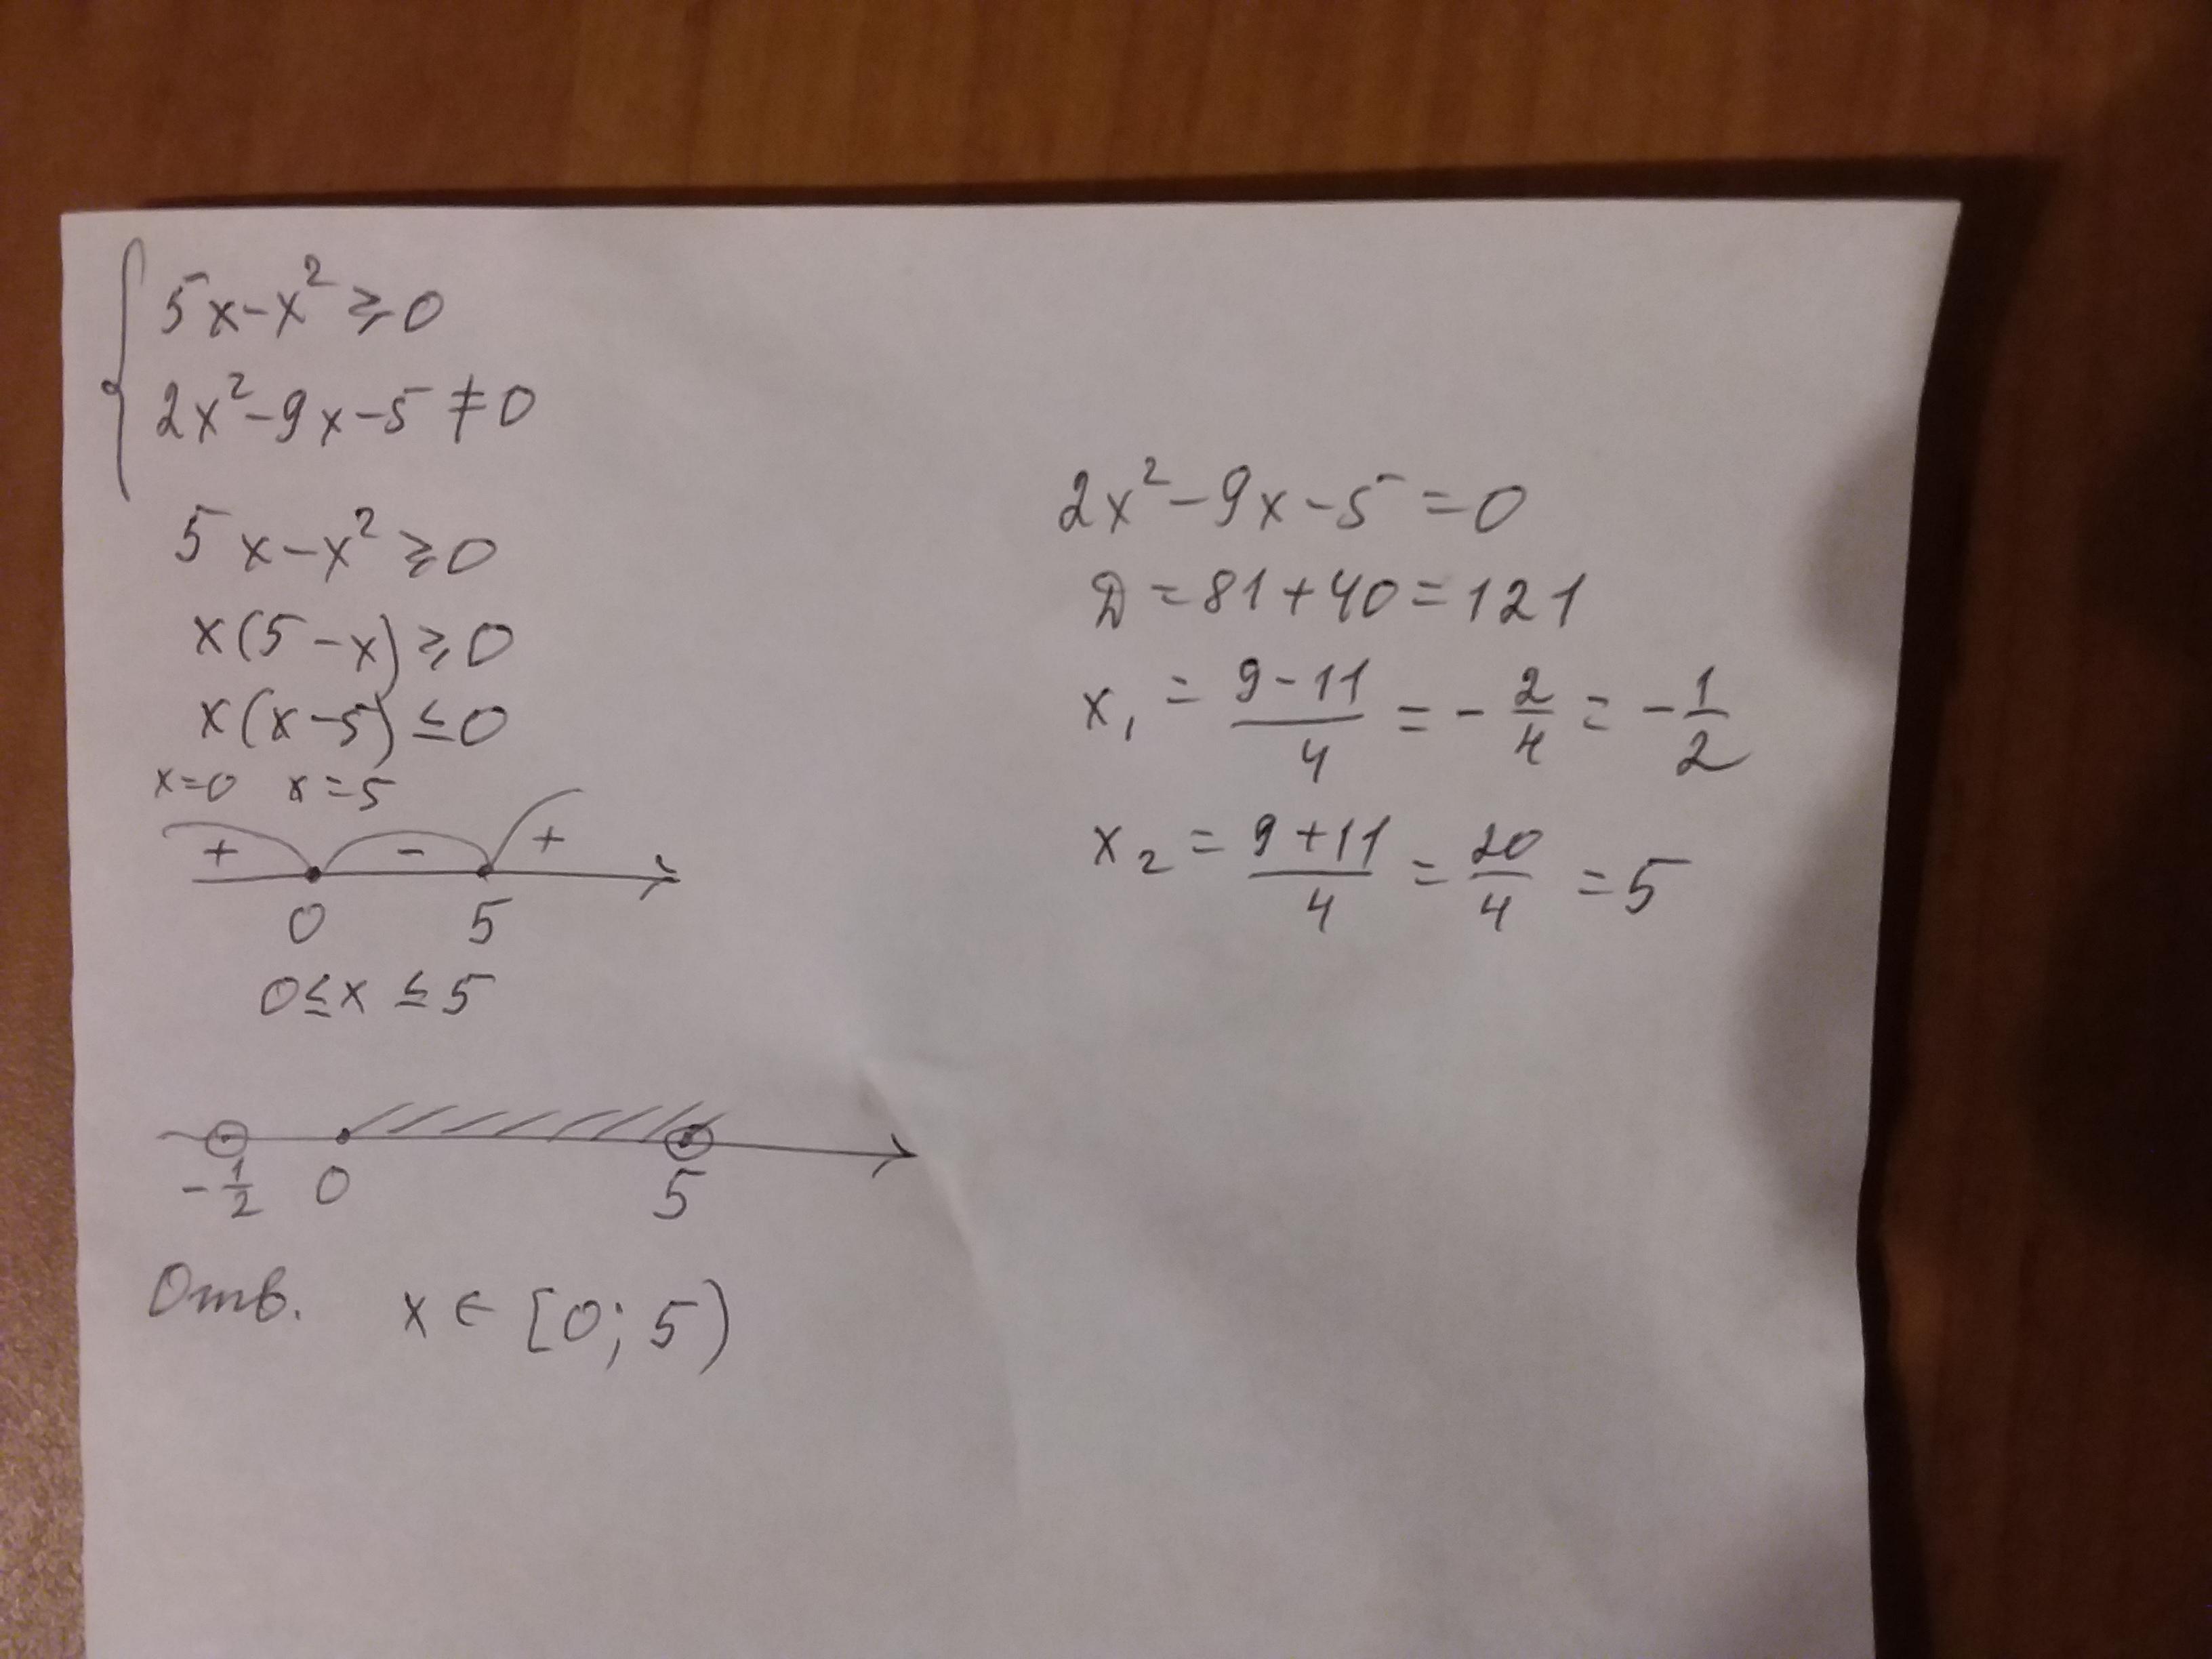 { 5x-x² ≥ 0
2x²-9x-5 ≠ 0
5x-x² ≥ 0
x(5-x) ≥ 0
x(x-5) ≤ 0
x=0 x=5
+ - +
0 5
0 ≤ x ≤ 5
-1/2 0 5
Отв. x ∈ [0; 5)
2x²-9x-5=0
D=81+40=121
x₁ = (9-11)/4 = -2/4 = -1/2
x₂ = (9+11)/4 = 20/4 = 5